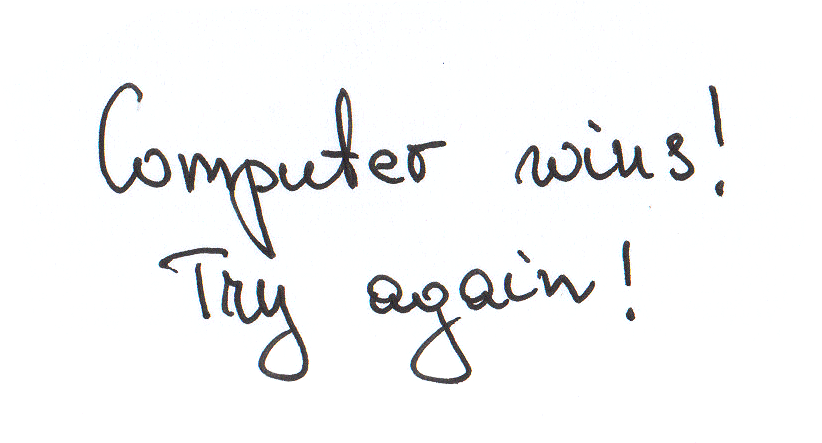 Computer wins!
Try again!